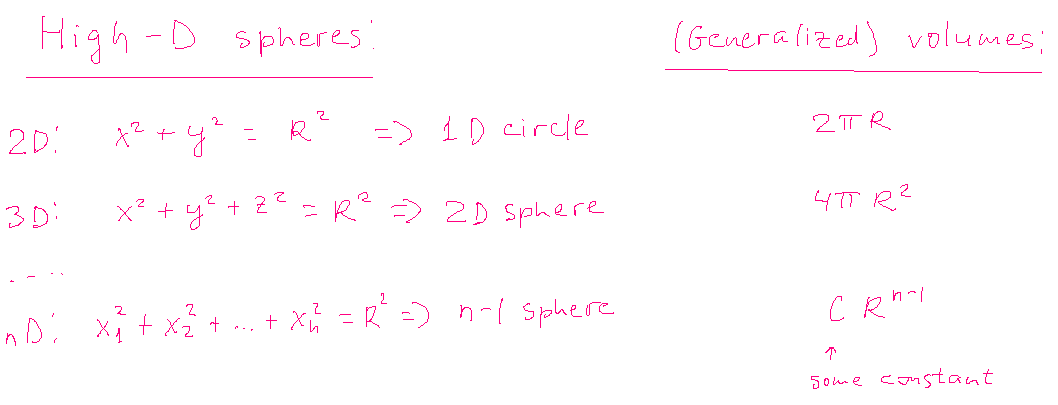 High-D spheres: (Generalized) volumes:
2D: x² + y² = R² => 1D circle 2πR
3D: x² + y² + z² = R² => 2D sphere 4πR²
. - ..
nD: x₁² + x₂² + ... + xₙ² = R² => n-1 sphere C Rⁿ⁻¹
↑
some constant